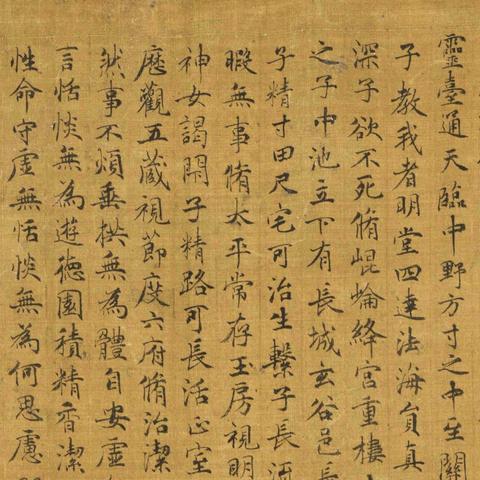 靈臺通天臨中野方寸之中至關
子教我者明堂四達法海貟真
深子欲不死脩崐崘絳宮重樓
之子中池立下有長城玄谷邑長
子精寸田尺宅可治生繫子長
暇無事脩太平常存王房視明
神女謁閇子精路可長活正室
歷觀五藏視節度六府脩治潔
然事不煩垂拱無為體自安虛
言恬惔無為遊德園積精香潔
性命守虛無恬惔無為何思慮